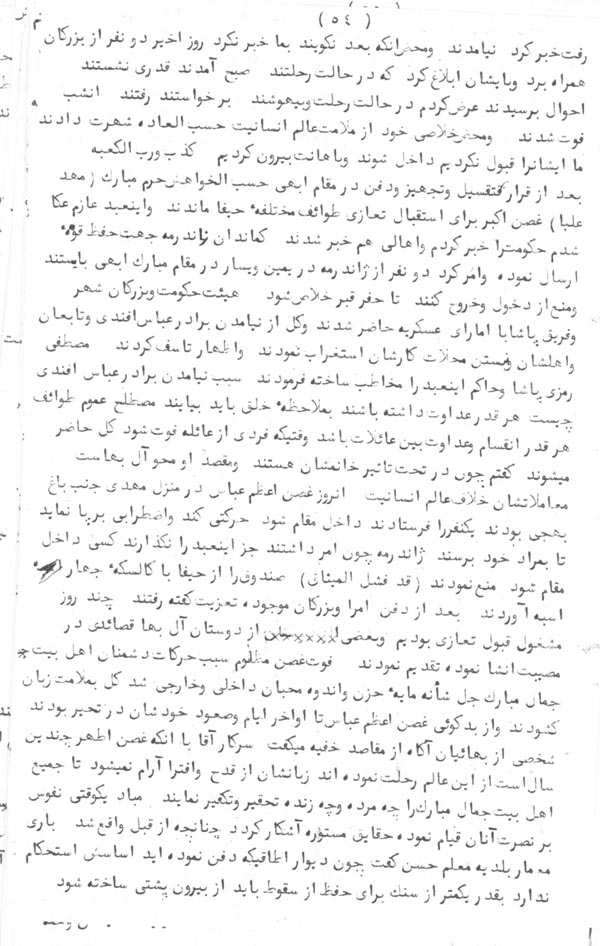 (٥٤)
رفت خبر کرد نیامدند ومحض انکه بعد نکویند بما خبر نکرد روز اخیر دو نفر از بزرکان
همراه برد وبایشان ابلاغ کرد که در حالت رحلتند صبح آمدند قدری نشستند
احوال پرسیدند عرض کردم در حالت رحلت وبیهوشند برخواستند رفتند انشب
فوت شدند ومحض خلاصی خود از ملامت عالم انسانیت حسب العاده شهرت دادند
ما ایشانرا قبول نکردیم داخل شوند وباهانت بیرون کردیم کذب ورب الکعبه
بعد از قرار تغسیل وتجهیز ودفن در مقام ابهی حسب الخواهش حرم مبارک (مهد
علیا) غصن اکبر برای استقبال تعازی طوائف مختلفه حیفا ماندند واینعبد عازم عکا
شدم حکومترا خبر کردم واهالی هم خبر شدند کماندان ژاندرمه جهت حفظ قوه
ارسال نموده وامر کرد دو نفر از ژاندرمه در یمین ویسار در مقام مبارک ابهی بایستند
ومنع از دخول وخروج کنند تا حفر قبر خلاص شود هیئت حکومت وبزرکان شهر
وفریق پاشا با امارای عسکریه حاضر شدند وکل از نیامدن برادر عباس افندی وتابعان
واهلشان وبستن محلات کارشان استغراب نمودند واظهار تاسف کردند مصطفی
رمزی پاشا وحاکم اینعبد را مخاطب ساخته فرمودند سبب نیامدن برادر عباس افندی
چیست هر قدر عداوت داشته باشند بملاحظه خلق باید بیایند مصطلح عموم طوائف
هر قدر انقسام وعداوت بین عائلات باشد وقتیکه فردی از عائله فوت شود کل حاضر
میشوند کفتم چون در تحت تاثیر خانمشان هستند ومقصد او محو آل بهاست
معاملاتشان خلاف عالم انسانیت انروز غصن اعظم عباس در منزل مهدی جنب باغ
بهجی بودند یکنفررا فرستادند داخل مقام شود حرکتی کند واضطرابی برپا نماید
تا بمراد خود برسند ژاندرمه چون امر داشتند جز اینعبد را نکذارند کسی داخل
مقام شود منع نمودند (قد فشل المیثاق) صندوق را از حیفا با کالسکه چهار
اسبه آوردند بعد از دفن امرا وبزرکان موجوده تعزیت کفته رفتند چند روز
مشغول قبول تعازی بودیم وبعضی از دوستان آل بها قصائدی در
مصیبت انشا نموده تقدیم نمودند فوت غصن مظلوم سبب حرکات دشمنان اهل بیت
جمال مبارک جل شأنه مایه حزن واندوه محبان داخلی وخارجی شد کل بملامت زبان
کشودند واز بدکوئی غصن اعظم عباس تا اواخر ایام وصعود خودشان در تحیر بودند
شخصی از بهائیان آکاه از مقاصد خفیه میکفت سرکار آقا با انکه غصن اطهر چندین
سال است از این عالم رحلت نموده اند زبانشان از قدح وافترا آرام نمیشود تا جمیع
اهل بیت جمال مبارک را چه مرده وچه زنده تحقیر وتکفیر نمایند مباد یکوقتی نفوس
بر نصرت آنان قیام نموده حقایق مستوره آشکار کردد چنانچه از قبل واقع شد باری
معمار بلدیه معلم حسن کفت چون دیوار اطاقیکه دفن نموده اید اساسش استحکام
ندارد بقدر یکمتر از سنك برای حفظ از سقوط باید از بیرون پشتی ساخته شود